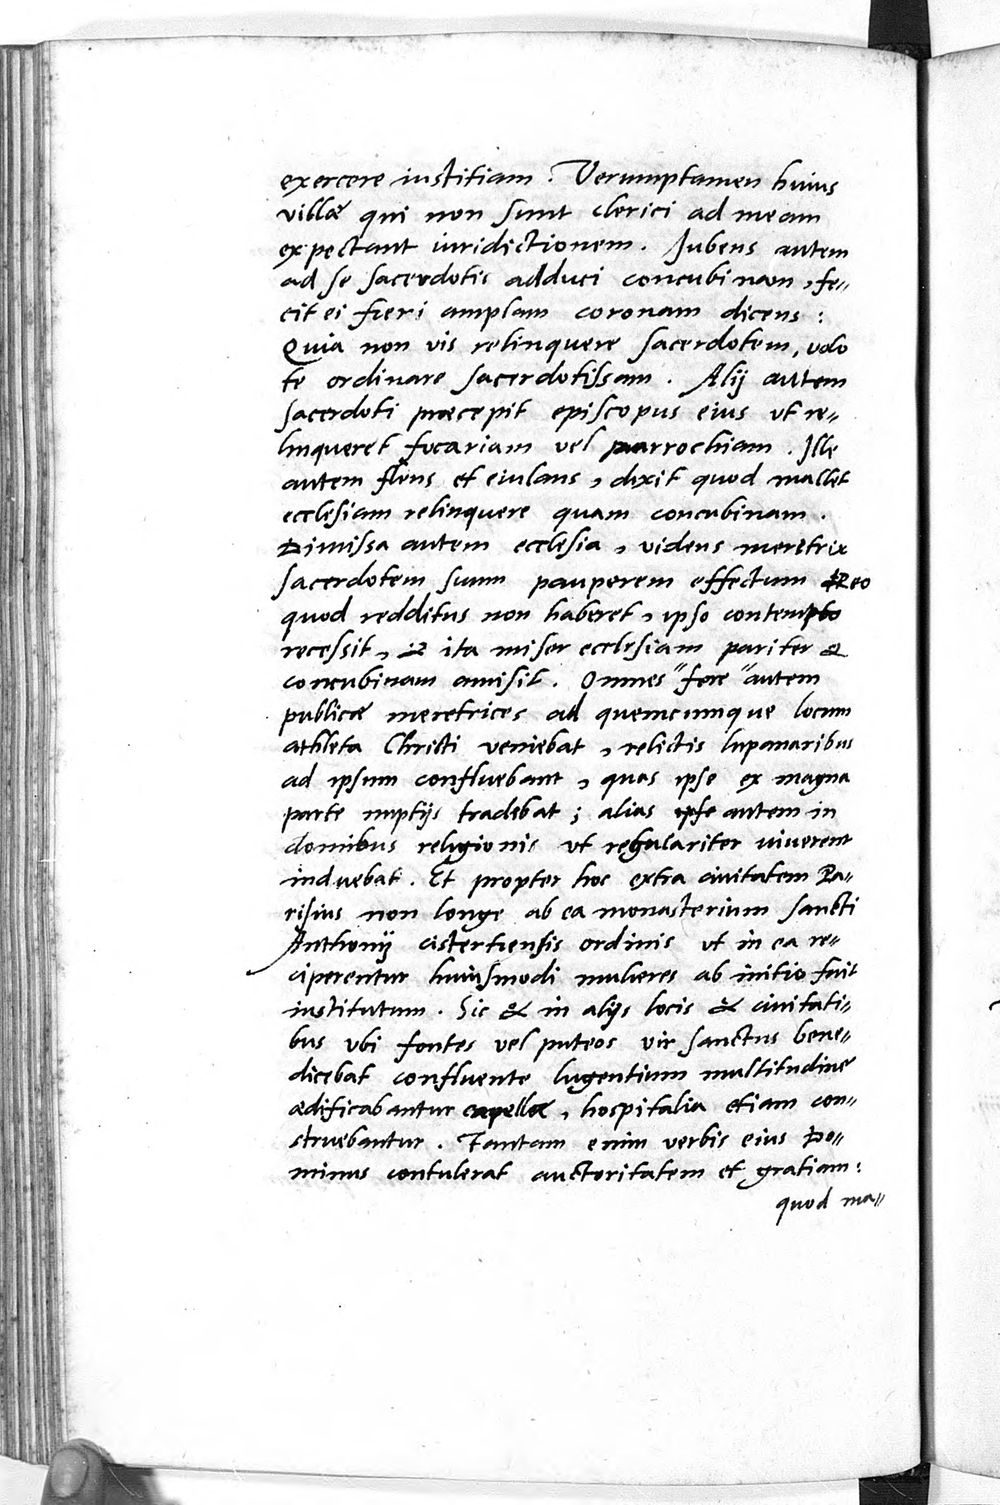 exercere iustitiam. Verumptamen huius
villæ qui non sunt clerici ad meam
expectant iuridictionem. Jubens autem
ad se sacerdotis adduci concubinam, fe=
cit ei fieri amplam coronam dicens:
Quia non vis relinquere sacerdotem, volo
te ordinare sacerdotissam. Alij autem
sacerdoti præcepit episcopus eius vt re=
linqueret focariam vel parrochiam. Ille
autem flens et eiulans, dixit quod mallet
ecclesiam relinquere quam concubinam.
Dimissa autem ecclesia, videns meretrix
sacerdotem suum pauperem effectum eo
quod redditus non haberet, ipso contempto
recessit, & ita miser ecclesiam pariter &
concubinam amisit. Omnes "fere "autem
publicæ meretrices ad quemcumque locum
athleta Christi veniebat, relictis lupanaribus
ad ipsum confluebant, quas ipse ex magna
parte nuptijs tradebat; alias autem in
domibus religionis vt regulariter viuerent
induebat. Et propter hoc extra ciuitatem Pa=
risius non longe ab ea monasterium sancti
Anthonij cistertiensis ordinis vt in ea re=
ciperentur huiusmodi mulieres ab initio fuit
institutum. Sic & in alijs locis & ciuitati=
bus vbi fontes vel puteos vir sanctus bene=
dicebat confluente lugentium multitudine
ædificabantur capellæ, hospitalia etiam con=
struebantur. Tantam enim verbis eius Do=
minus contulerat auctoritatem et gratiam:
quod ma=